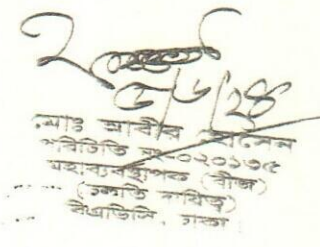 ৩/৬/২৪
মোঃ আবীর হোসেন
পরিচিতি নং-০২০১৭৫
মহাব্যবস্থাপক (বীজ)
(চলতি দায়িত্ব)
বিএডিসি, ঢাকা